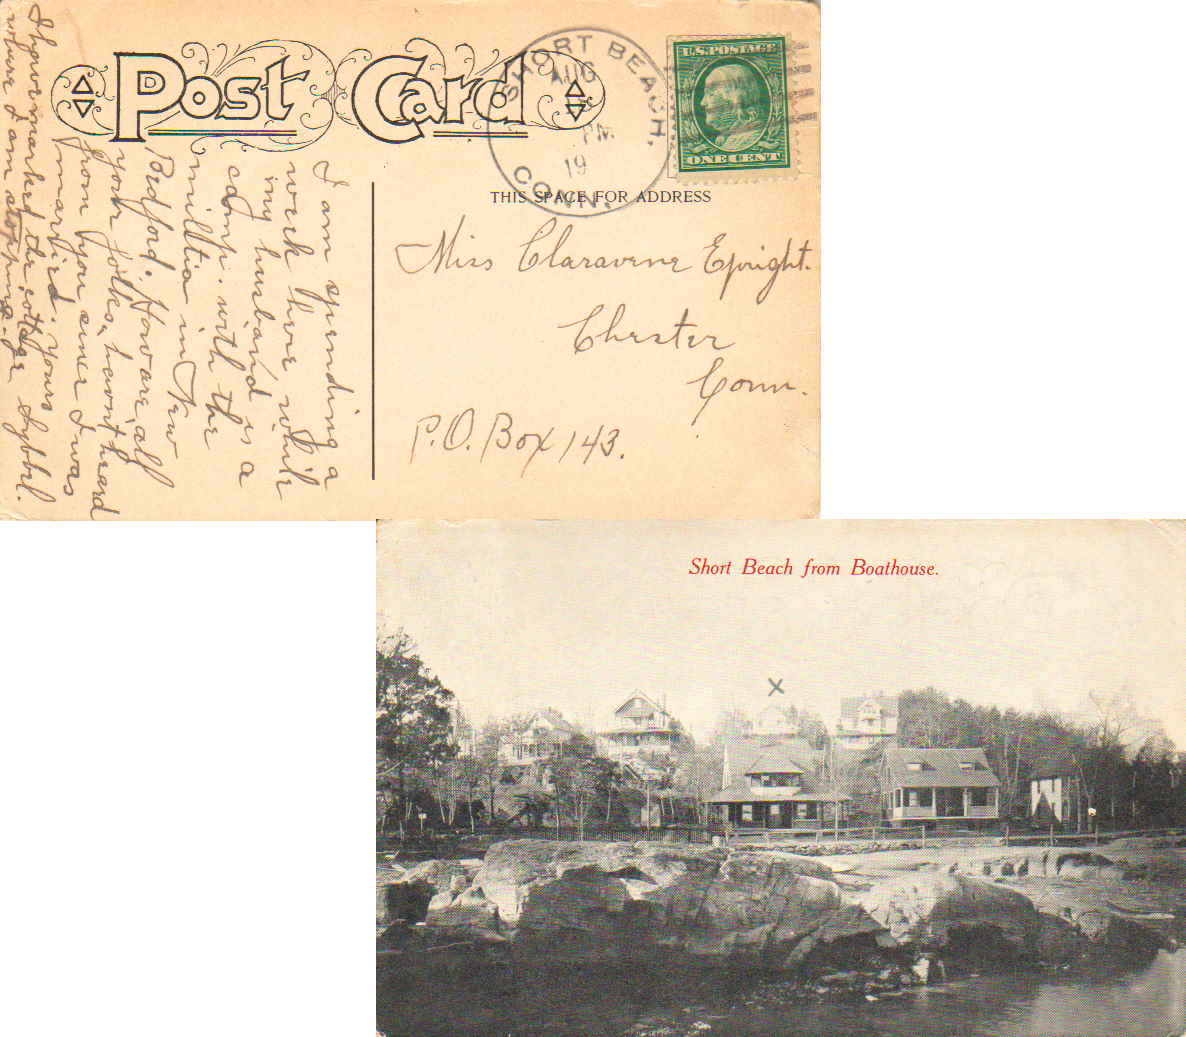 Post Card
SHORT BEACH,
CONN.
AUG
PM
19
U.S. POSTAGE
ONE CENT
THIS SPACE FOR ADDRESS
Miss Claravene Epright.
Chester
Conn.
P.O. Box 143.
I am spending a
week here while
my husband is a
camp. with the
militia in New
Bedford. How are all
your folks, havn't heard
from you since I was
married. Yours Sybbel.
I have marked the cottage
where I am stopping.
Short Beach from Boathouse.
X